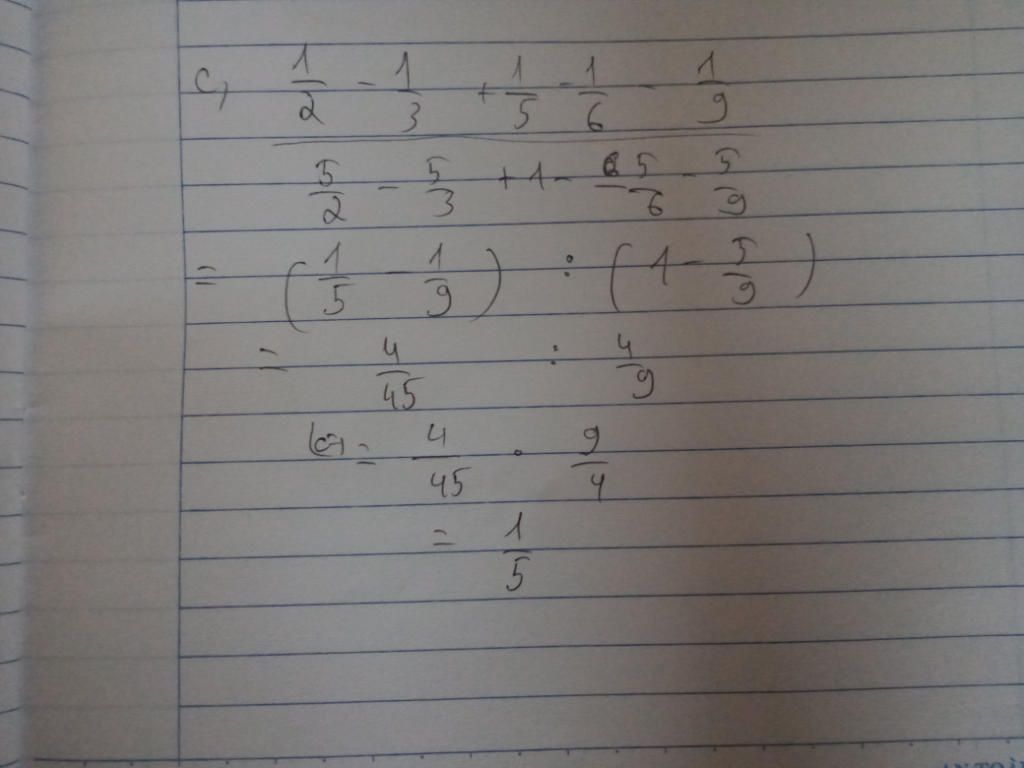 c, 1/2 - 1/3 + 1/5 - 1/6 - 1/9
5/2 - 5/3 + 1 - 5/6 - 5/9
= (1/5 - 1/9) : (1 - 5/9)
= 4/45 : 4/9
= 4/45 . 9/4
= 1/5